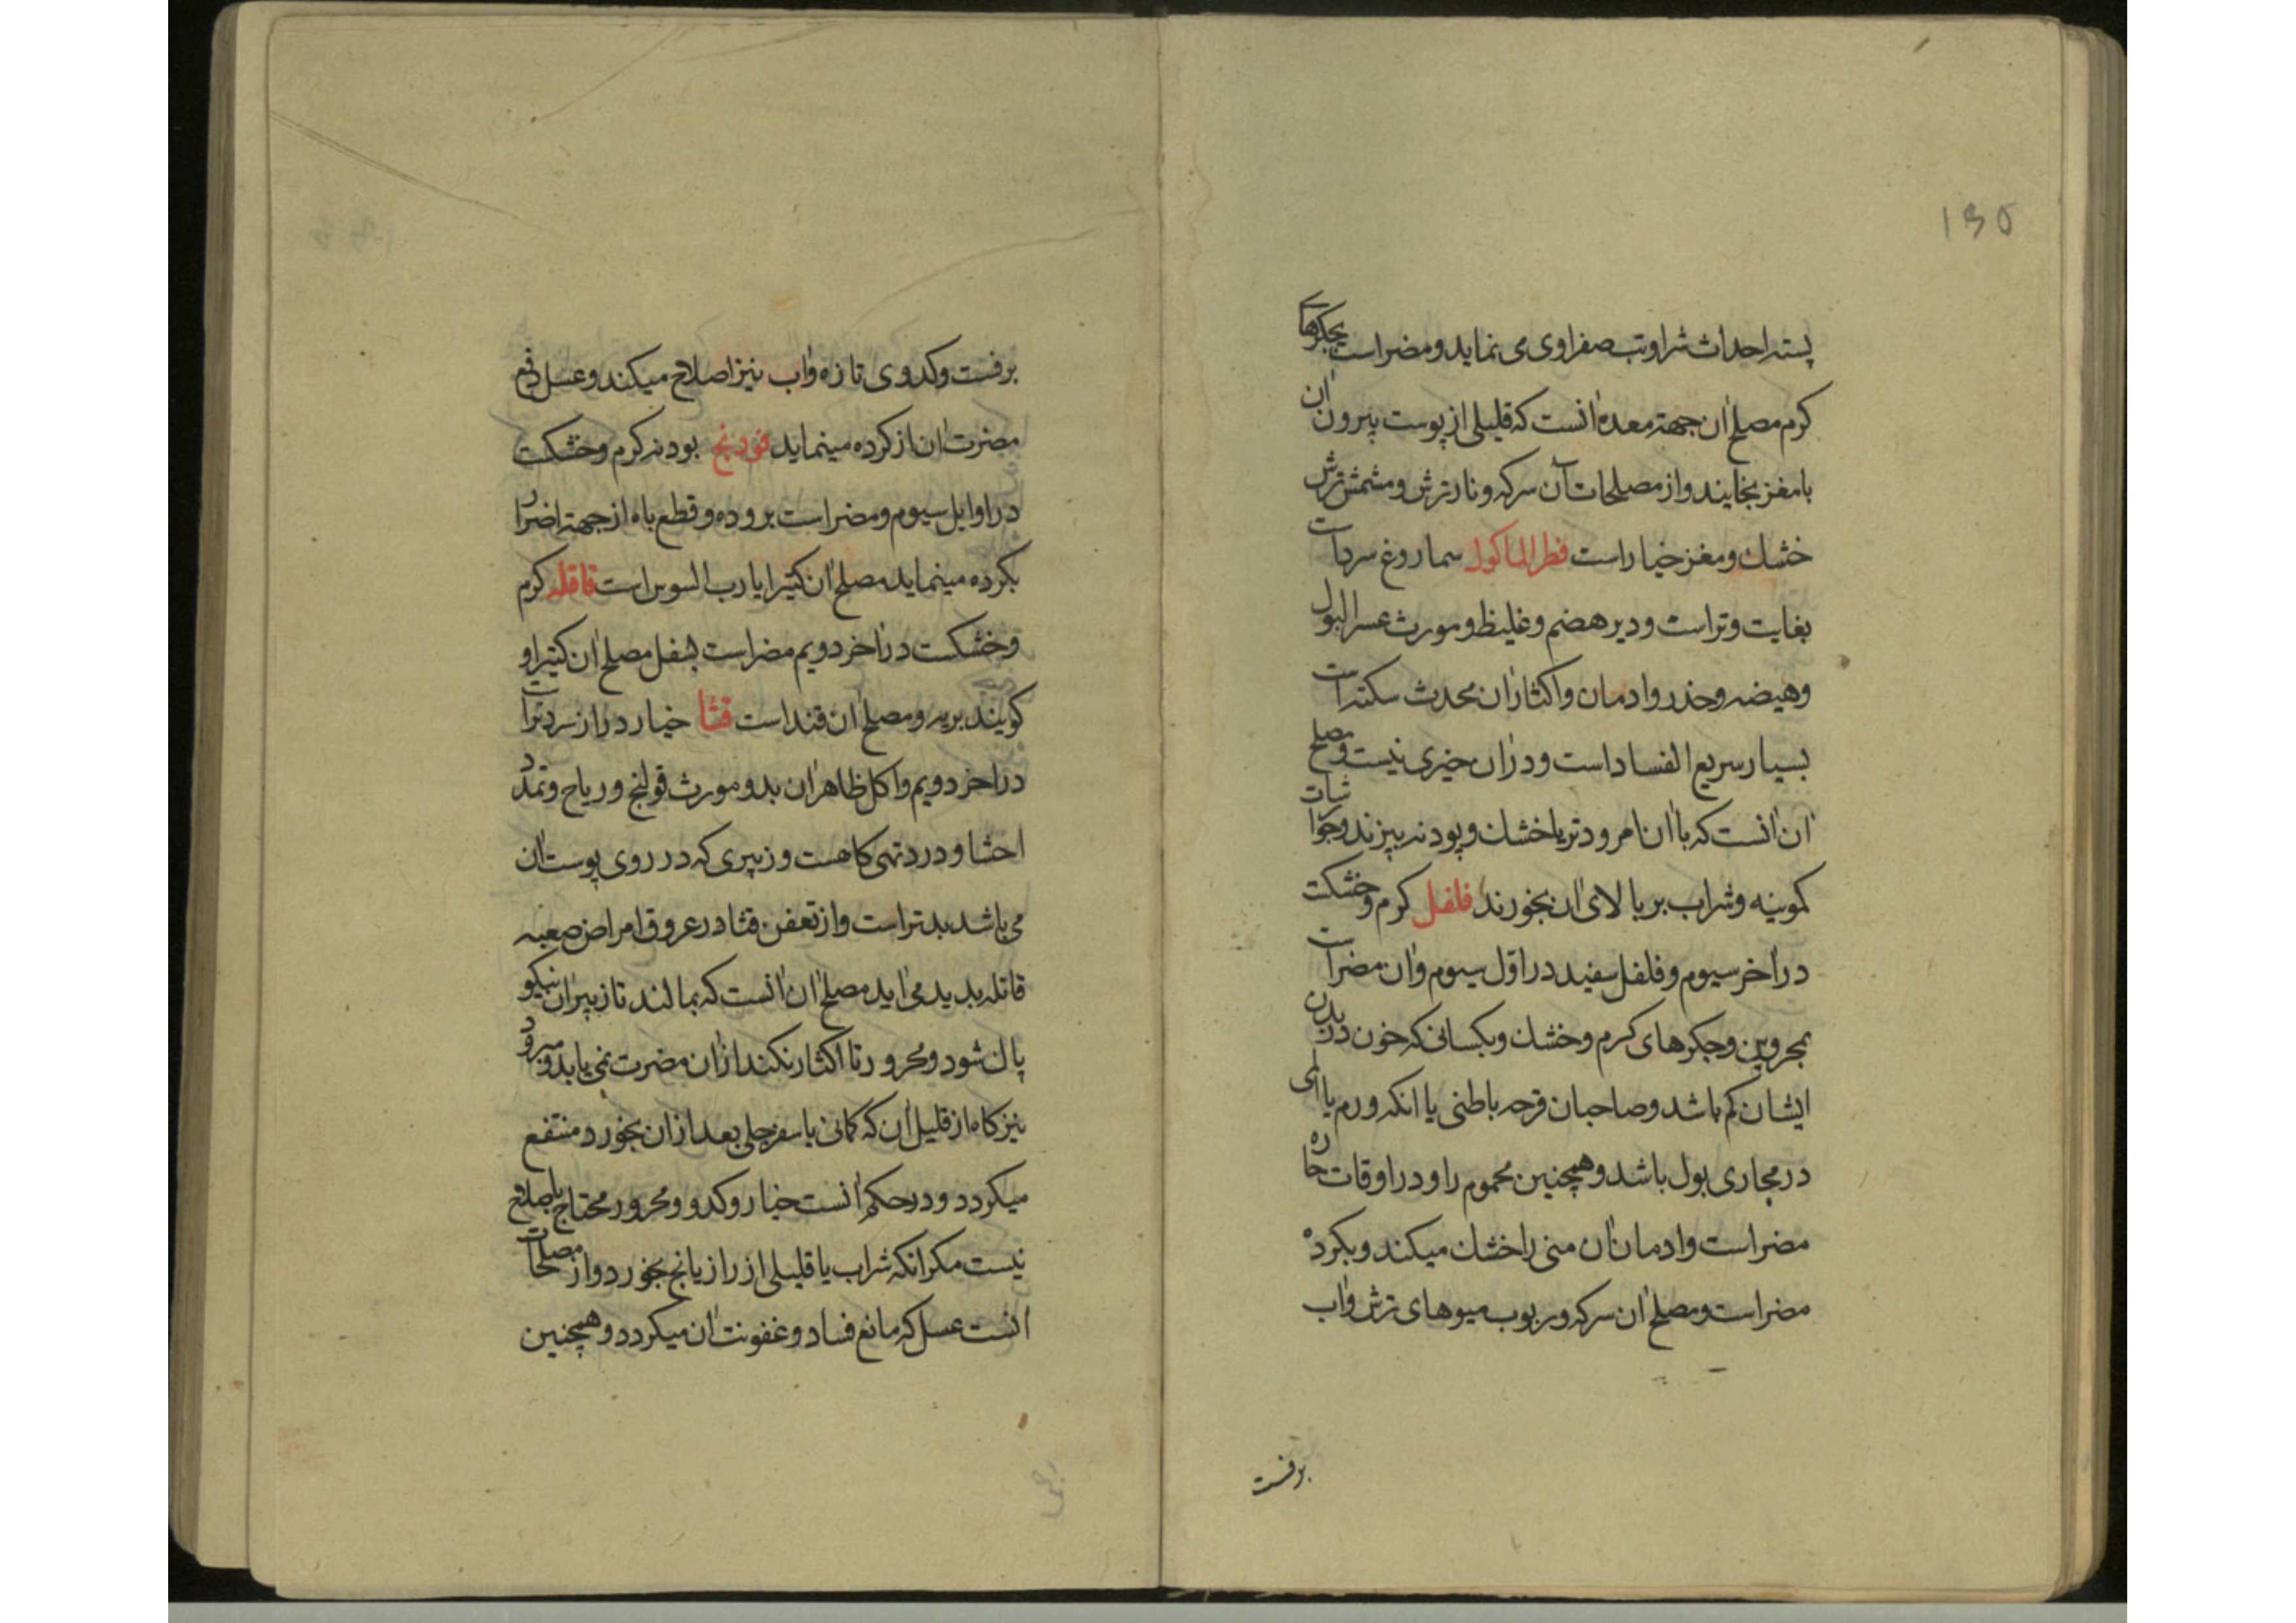 ۱۳۵
پسته احداث شرا وتب صفراوی می نماید ومضر است بجکرهای
کرم مصلح ان جهته معده انست که قلیلی از پوست بیرون ان
بامغز بخایند واز مصلحات آن سرکه ونار ترش ومشمش ترش
خشك ومغز خیار است فطر الماکول سماروغ سرد است
بغایت وتر است ودیر هضم وغلیظ ومورث عسر البول
وهیضه وخدر وادمان واکثار ان محدث سکته است
بسیار سریع الفساد است ودران خیری نیست ومصلح
ان انست که باان نامرود تر یا خشك وپودنه بپزند وجوارشات
کمونیه وشراب بر بالای ان بخورند فلفل کرم وخشکت
در اخر سیوم وفلفل سفید در اول سیوم وان مضر است
بمحرورین وجکرهای کرم وخشك وبکسانی که خون در بدن
ایشان کم باشد وصاحبان قرحه باطنی یا انکه ورم یا المی
در مجاری بول باشد وهمچنین محموم را ودر اوقات حاره
مضر است وادمان ان منی را خشك میکند وبکرده
مضر است ومصلح ان سرکه وربوب میوهای ترش واب
برفست
برفست وکدوی تازه واب نیز اصلاح میکند وعسل دفع
مضرت ان از کرده مینماید فودنج بودنه کرم وخشکت
در اوایل سیوم ومضر است بروده وقطع باه از جهته اضرار
بکرده مینماید مصلح ان کتیرا یا رب السوس است قاقله کرم
وخشکست در اخر دویم مضر است بسفل مصلح ان کتیرا و
کویند بریه ومصلح ان قند است قثا خیار دراز سرد تر است
در اخر دویم واکل ظاهر ان بد ومورث قولنج وریاح وتمدد
احشا ودرد تهی کاهست وزبری که در روی پوست ان
می باشد بدتر است واز تعفن قثا در عروق امراض صعبه
قاتله پدید می اید مصلح ان انست که بمالند تا زبر ان نیکو
پاك شود ومحرور تا اکثار نکند از ان مضرت نمی یابد ومبرود
نیز کاه از قلیل ان که کمانی یا سفرجلی بعد از ان بخورد منتفع
میکردد ودر حکم انست خیار وکدو ومحرور محتاج باصلاح
نیست مکر انکه شراب یا قلیلی از رازیانج بخورد واز مصلحات
انست عسل که مانع فساد وعفونت ان میکردد وهمچنین